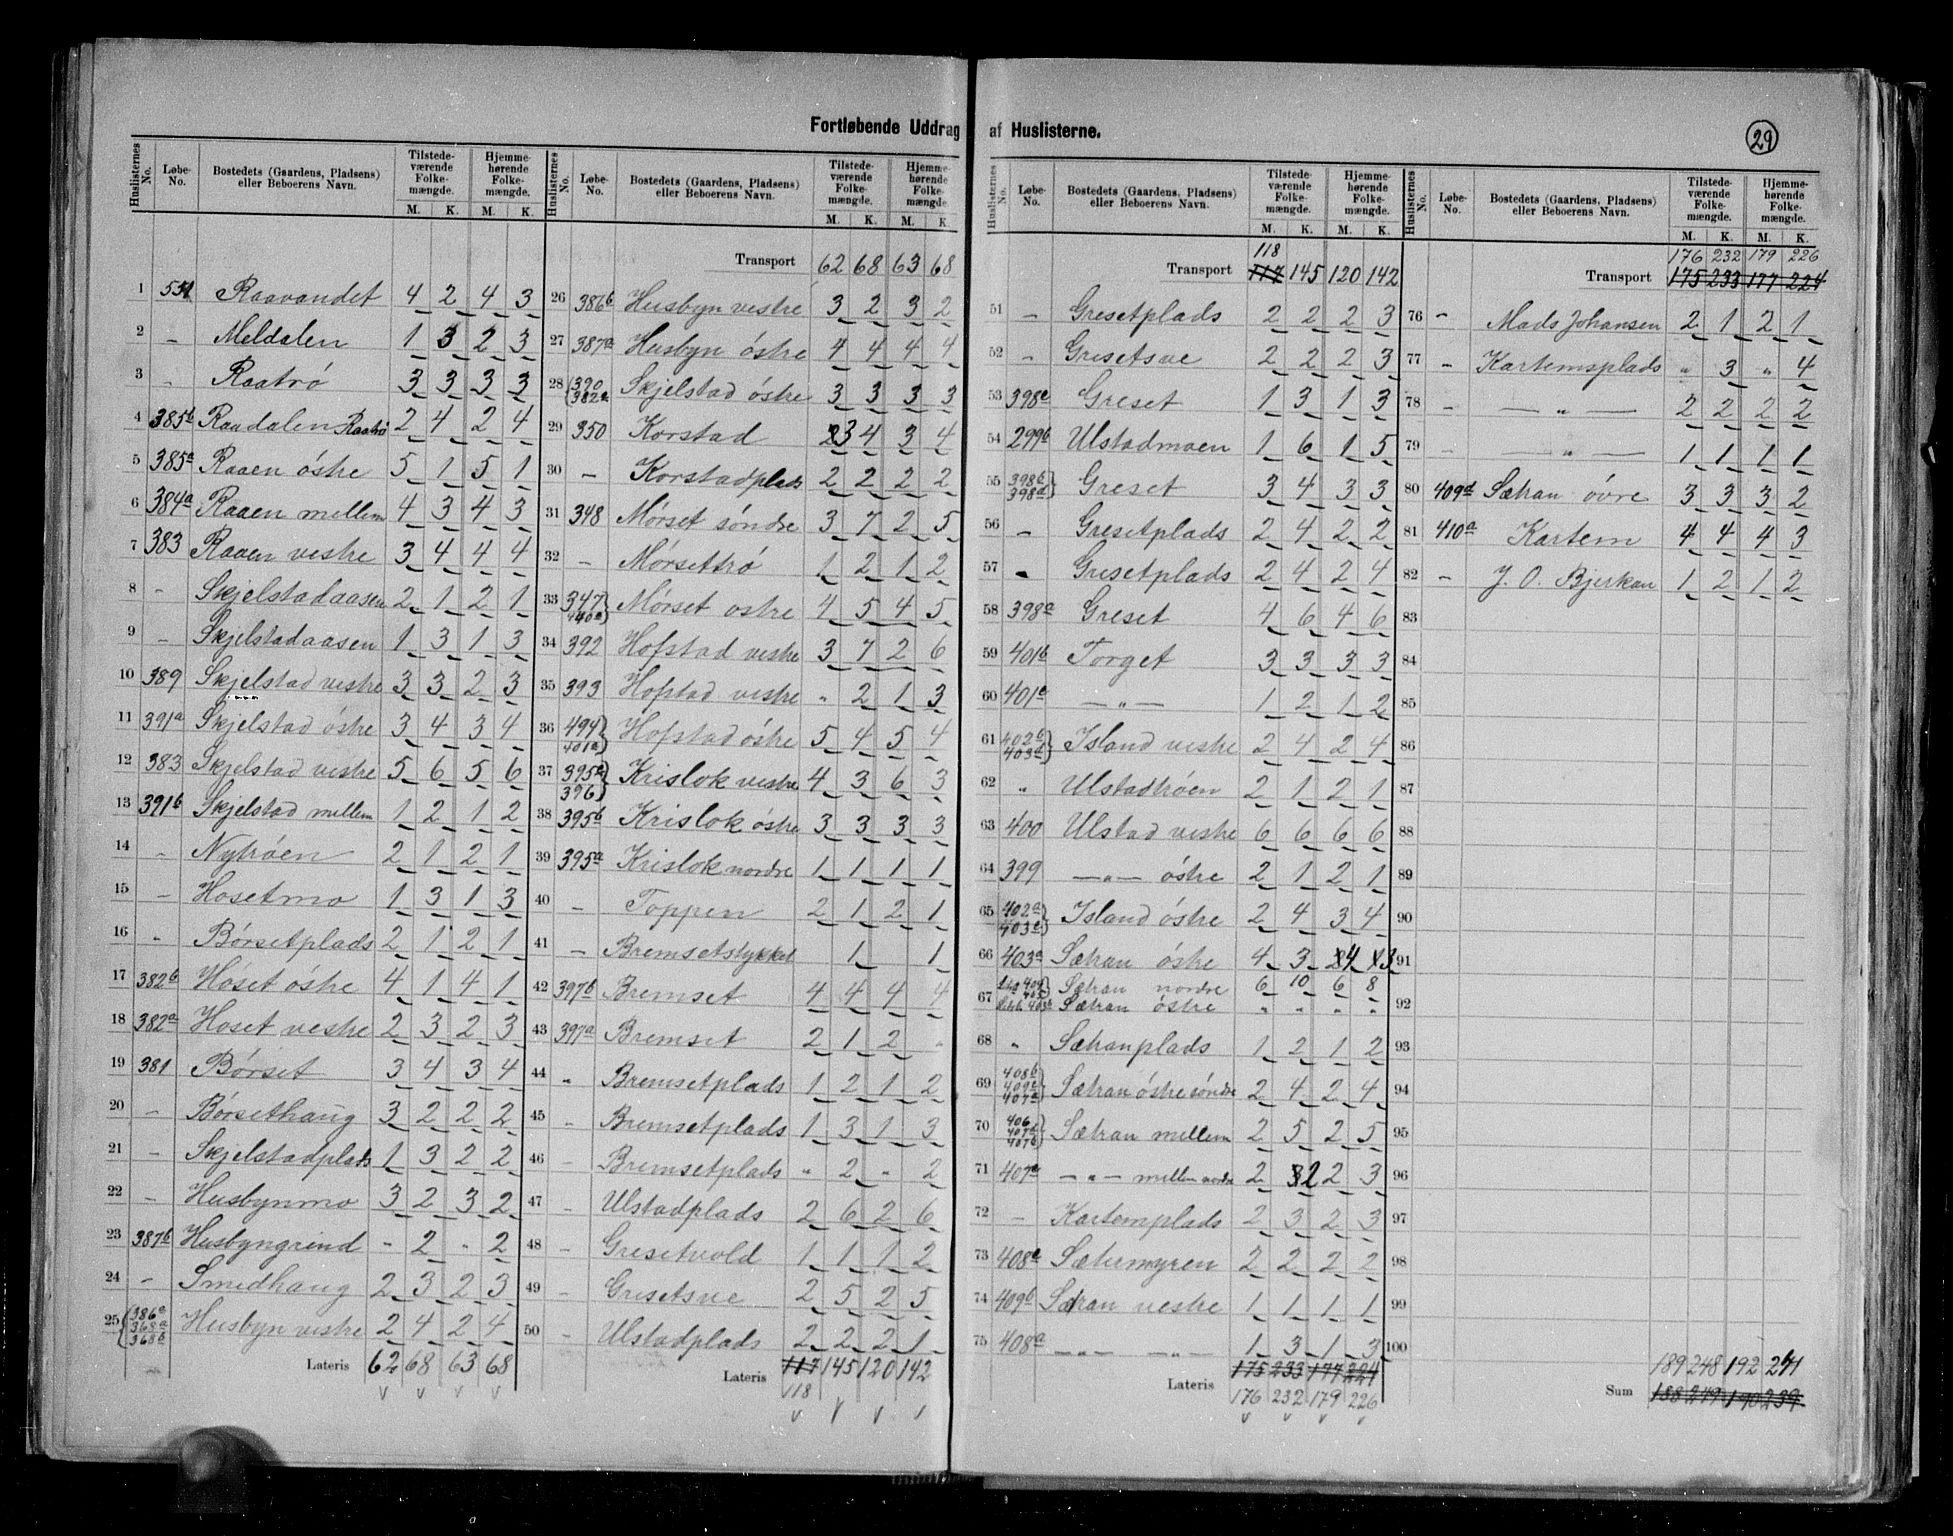 Fortløbende Uddrag af Huslisterne.
29
Huslisternes No. Løbe-No. Bostedets (Gaardens, Pladsens) eller Beboerens Navn. Tilstedeværende Folkemængde. M. K. Hjemmehørende Folkemængde. M. K.
1 551 Raavandet 4 2 4 3
2 - Meldalen 1 3 2 3
3 - Raatrø 3 3 3 3
4 385b Raadalen Raatrø 2 4 2 4
5 385a Raaen östre 5 1 5 1
6 384a Raaen mellem 4 3 4 3
7 383 Raaen vestre 3 4 4 4
8 - Skjelstadaasen 2 1 2 1
9 - Skjelstadaasen 1 3 1 3
10 389 Skjelstad vestre 3 3 2 3
11 391a Skjelstad östre 3 4 3 4
12 383 Skjelstad vestre 5 6 5 6
13 391b Skjelstad mellem 1 2 1 2
14 - Nytröen 2 1 2 1
15 - Hosetmo 1 3 1 3
16 - Børsetplads 2 1 2 1
17 382b Höset östre 4 1 4 1
18 382a Hoset vestre 2 3 2 3
19 381 Børset 3 4 3 4
20 - Börsethaug 3 2 2 2
21 - Skjelstadplads 1 3 2 2
22 - Husbynmo 3 2 3 2
23 387b Husbyngrind - 2 - 2
24 - Smedhaug 2 3 2 3
25 386a 368a 368b Husbyn vestre 2 4 2 4
Lateris 62 68 63 68
Huslisternes No. Løbe-No. Bostedets (Gaardens, Pladsens) eller Beboerens Navn. Tilstedeværende Folkemængde. M. K. Hjemmehørende Folkemængde M. K.
Transport 62 68 63 68
26 386b Husbyn vestre 3 2 3 2
27 387a Husbyn östre 4 4 4 4
28 390 382a Skjelstad östre 3 3 3 3
29 350 Korstad 3 4 3 4
30 - Korstadplads 2 2 2 2
31 348 Mørset söndre 3 7 2 5
32 - Mørsettrø 1 2 1 2
33 347 440a Mørset ostre 4 5 4 5
34 392 Hofstad vestre 3 7 2 6
35 393 Hofstad vestre " 2 1 3
36 494 401a Hofstad östre 5 4 5 4
37 395a 396 Krislok vestre 4 3 6 3
38 395b Krislok östre 3 3 3 3
39 395a Krislok nordre 1 1 1 1
40 - Toppen 2 1 2 1
41 - Bremsetstykket 1 1
42 397b Bremset 4 4 4 4
43 397a Bremset 2 1 2 "
44 " Bremsetplads 1 2 1 2
45 - Bremsetplads 1 3 1 3
46 - Bremsetplads " 2 " 2
47 - Ulstadplads 2 6 2 6
48 - Gresetvold 1 1 1 2
49 - Grisetsve 2 5 2 5
50 - Ulstadplads 2 2 2 1
Lateris 117 145 120 142
118
Huslisternes No. Løbe-No. Bostedets (Gaardens, Pladsens) eller Beboerens Navn. Tilstedeværende Folkemængde. M. K. Hjemmehørende Folkemængde. M. K.
118
Transport 117 145 120 142
51 - Gresetplads 2 2 2 3
52 " Grisetsve 2 2 2 3
53 398c Greset 1 3 1 3
54 299b Ulstadmoen 1 6 1 5
55 398b 398d Greset 3 4 3 3
56 - Gresetplads 2 4 2 2
57 - Gresetplads 2 4 2 4
58 398a Greset 4 6 4 6
59 401b Torget 3 3 3 3
60 401c — " — 1 2 1 2
61 402b 403b Island vestre 2 4 2 4
62 " Ulstadtröen 2 1 2 1
63 400 Ulstad vestre 6 6 6 6
64 399 — " — östre 2 1 2 1
65 402a 403c Island östre 2 4 3 4
66 403a Sætran östre 4 3 4 3
67 Sætran nordre 6 10 6 8
Sætran östre " " " "
68 " Sætranplads 1 2 1 2
69 408b 409c 407a Sætran östre söndre 2 4 2 4
70 406 407d 407b Sætran mellem 2 5 2 5
71 407c — " — mellem nordre 2 2 2 3
72 - Kartemplads 2 3 2 3
73 408c Sætermyren 2 2 2 2
74 409b Sætran vestre 1 1 1 1
75 408a — " — — " — 1 3 1 3
Lateris 175 233 177 224
176 232 179 226
Huslisternes No. Løbe-No. Bostedets (Gaardens, Pladsens) eller Beboerens Navn. Tilstedeværende Folkemængde. M. K. Hjemmehørende Folkemængde. M. K.
176 232 179 226
Transport 175 233 177 224
76 - Mads Johansen 2 1 2 1
77 - Kartemsplads " 3 " 4
78 - — " — 2 2 2 2
79 - — " — 1 1 1 1
80 409d Sætran övre 3 3 3 2
81 410a Kartem 4 4 4 3
82 - J. O. Bjerkan 1 2 1 2
83
84
85
86
87
88
89
90
91
92
93
94
95
96
97
98
99
100
189 248 192 241
Sum 188 249 190 239